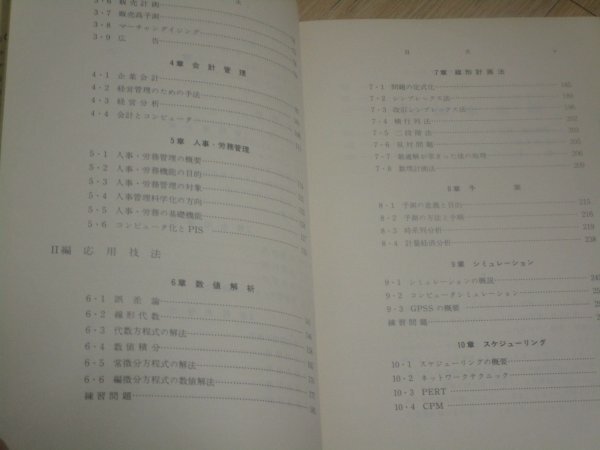 3・6 販売計画
3・7 販売高予測
3・8 マーチャンダイジング
3・9 広告
4章 会計管理
4・1 企業会計
4・2 経営管理のための手法
4・3 経営分析
4・4 会計とコンピューター
5章 人事・労務管理
5・1 人事・労務管理の概要
5・2 人事・労務機能の目的
5・3 人事・労務管理の対象
5・4 人事管理科学化の方向
5・5 人事・労務の基礎機能
5・6 コンピュータ化とPIS
II編 応用技法
6章 数値解析
6・1 誤差論
6・2 線形代数
6・3 代数方程式の解法
6・4 数値積分
6・5 常微分方程式の解法
6・6 偏微分方程式の数値解法
練習問題
目次
7章 線形計画法
7・1 問題の定式化 185
7・2 シンプレックス法
7・3 改訂シンプレックス法
7・4 横行列法 202
7・5 二段階法 205
7・6 双対問題 207
7・7 最適解が求まった後の処理
7・8 数理計画法 209
8章 予測
8・1 予測の意義と目的 215
8・2 予測の方法と手順 218
8・3 時系列分析 219
8・4 計量経済分析 238
9章 シミュレーション
9・1 シミュレーションの概説
9・2 コンピュータシミュレーション
9・3 GPSSの概要
練習問題
10章 スケジューリング
10・1 スケジューリングの概要
10・2 ネットワークテクニック
10・3 PERT
10・4 CPM